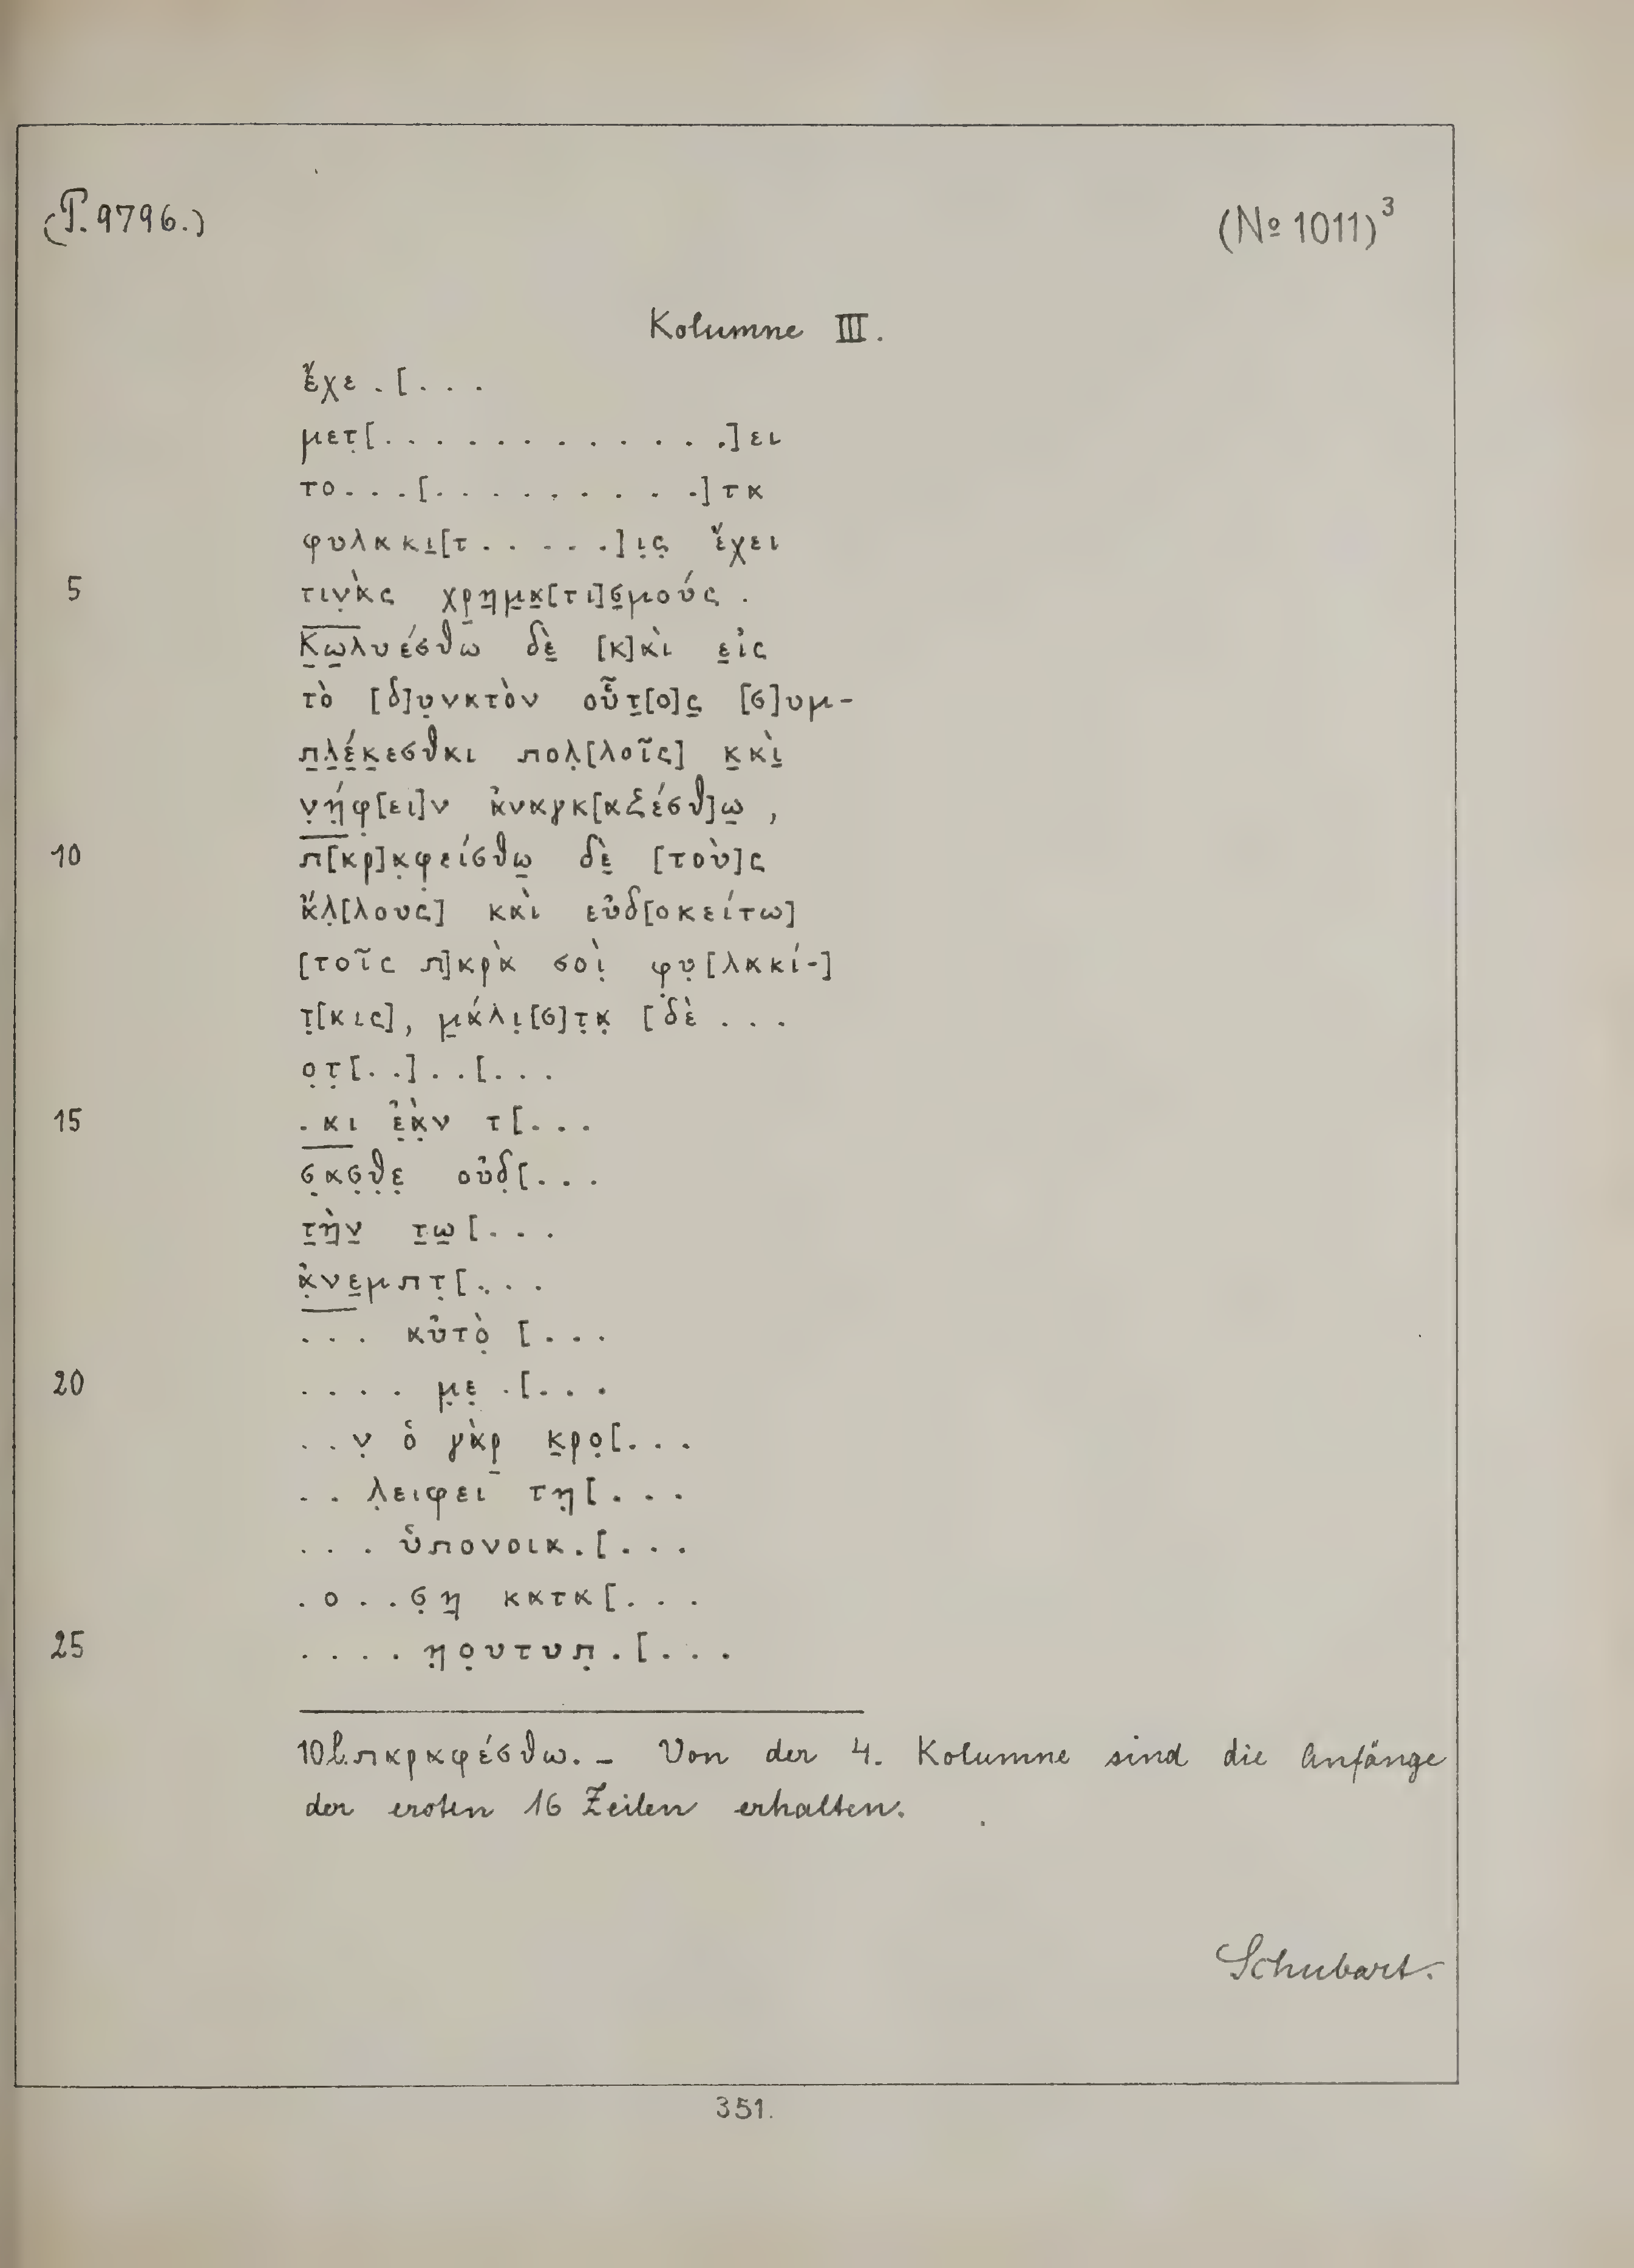 (P. 9796.)
(№ 1011)³
Kolumne III.
ἔχε . [ . . .
μετ̣[ . . . . . . . . . . . . ]ει
το . . . [ . . . . . . . . . . ]τα
φυλακι̣[τ . . . . . ]ι̣ς̣ ἔχει
5 τιν̣ὰς χρ̣η̣μ̣α̣[τι]σ̣μούς .
Κ̣ω̣λυέσθω δὲ̣ [κ]αὶ ε̣ἰς
τὸ [δ]υ̣νατὸν οὗτ̣[ο]ς̣ [σ]υμ-
π̣λ̣έ̣κ̣εσθαι πολ̣[λοῖς] κ̣αὶ̣
ν̣ή̣φ̣[ει]ν ἀναγκ[αζέσθ]ω̣ ,
10 π[αρ]α̣φ̣είσθω̣ δὲ̣ [τοὺ]ς
ἄλ̣[λους] καὶ εὐδ[οκείτω]
[τοῖς π]αρὰ σοὶ̣ φ̣υ̣[λακί-]
τ̣[αις], μ̣άλι̣[σ]τ̣α̣ [δὲ . . .
ο̣τ̣[ . . ] . . [ . . .
15 . αι ἐ̣ὰ̣ν τ[ . . .
σ̣ασ̣θ̣ε̣ οὐδ̣[ . . .
τ̣ὴ̣ν̣ τ̣ω̣[ . . .
ἀ̣νε̣μπτ̣[ . . .
. . . αὐτὸ̣ [ . . .
20 . . . . μ̣ε̣ . [ . . .
. . ν̣ ὁ γὰρ̣ κ̣ρο̣[ . . .
. . λ̣ειφει τη̣[ . . .
. . . ὑπονοια . [ . . .
. ο . . σ̣η̣ κατα[ . . .
25 . . . . η̣ο̣υτυπ̣ . [ . . .
10 l. παραφέσθω. – Von der 4. Kolumne sind die Anfänge
der ersten 16 Zeilen erhalten.
Schubart.
351.